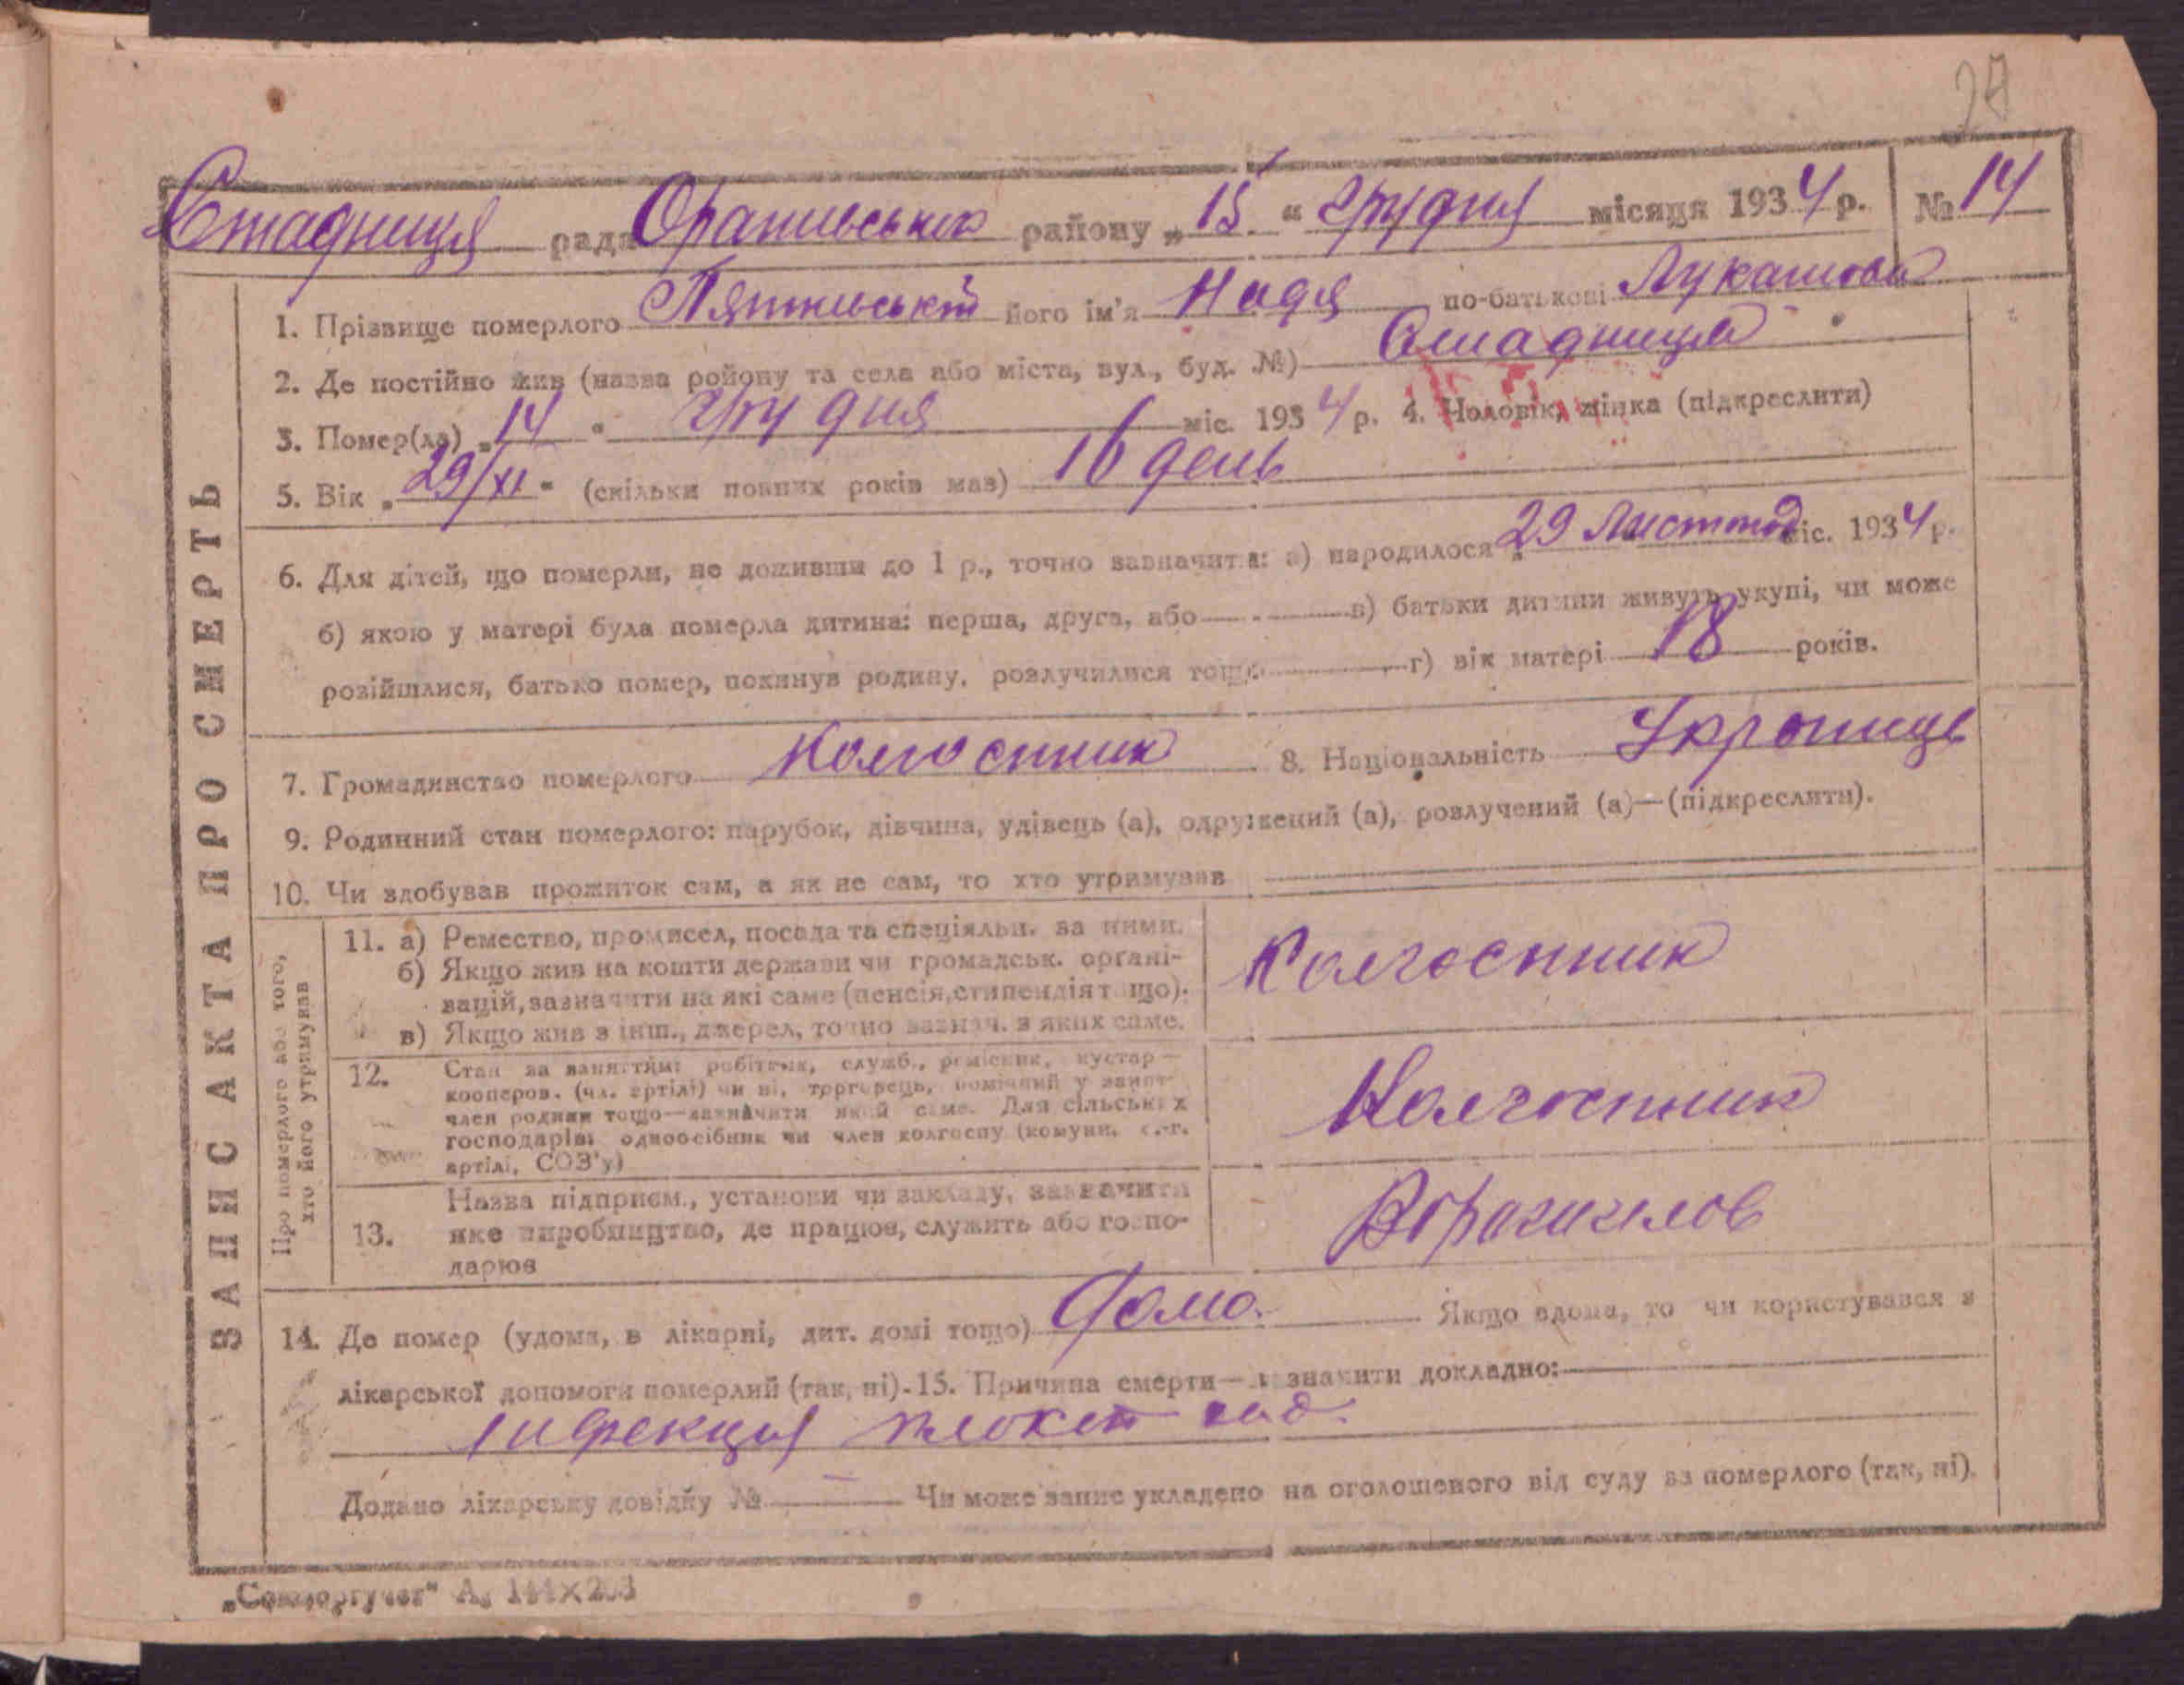 Стадниця рада Оратівського району „ 15 “ грудня місяця 1934 р. № 14
1. Прізвище померлого його ім'я Надя по-батькові
2. Де постійно жив (назва ройону та села або міста, вул., буд. №) Стадниця
3. Помер(ла) „ 14 “ грудня міс. 1934 р. 4. Чоловік, жінка (підкреслити)
5. Вік „ 29/XI “ (скільки повних років мав) 16 день
6. Для дітей, що померли, не доживши до 1 р., точно зазначити: а) народилося „ 29 Листопод міс. 1934 р.
б) якою у матері була померла дитина: перша, друга, або в) батьки дитини живуть укупі, чи може
розійшлися, батько помер, покинув родину, розлучилися тощо г) вік матері 18 років.
7. Громадянство померлого Колгоспник 8. Національність
9. Родинний стан померлого: парубок, дівчина, удівець (а), одружений (а), розлучений (а)—(підкреслити).
10. Чи здобував прожиток сам, а як не сам, то хто утримував
ЗАПИС АКТА ПРО СМЕРТЬ
Про померлого або того,
хто його утримував
11. а) Ремество, промисел, посада та спеціяльн. за ними.
б) Якщо жив на кошти держави чи громадськ. органі-
зацій, зазначити на які саме (пенсія, стипендія тощо).
в) Якщо жив з інш., джерел, точно зазнач. з яких саме.
Колгоспник
12. Стан за заняттям: робітник, служб., ремісник, кустар—
кооперов. (чл. артілі) чи ні, торговець, помічний у занят.
член родини тощо—зазначити який саме. Для сільських
господарів: одноосібник чи член колгоспу (комуни, с.-г.
артілі, СОЗ'у)
Колгоспник
13. Назва підприєм., установи чи закладу, зазначити
яке виробництво, де працює, служить або госпо-
дарює
14. Де помер (удома, в лікарні, дит. домі тощо) Дома. Якщо вдома, то чи користувався з
лікарської допомоги померлий (так, ні). 15. Причина смерти— зазначити докладно:
Додано лікарську довідку № — Чи може запис укладено на оголошеного від суду за померлого (так, ні).